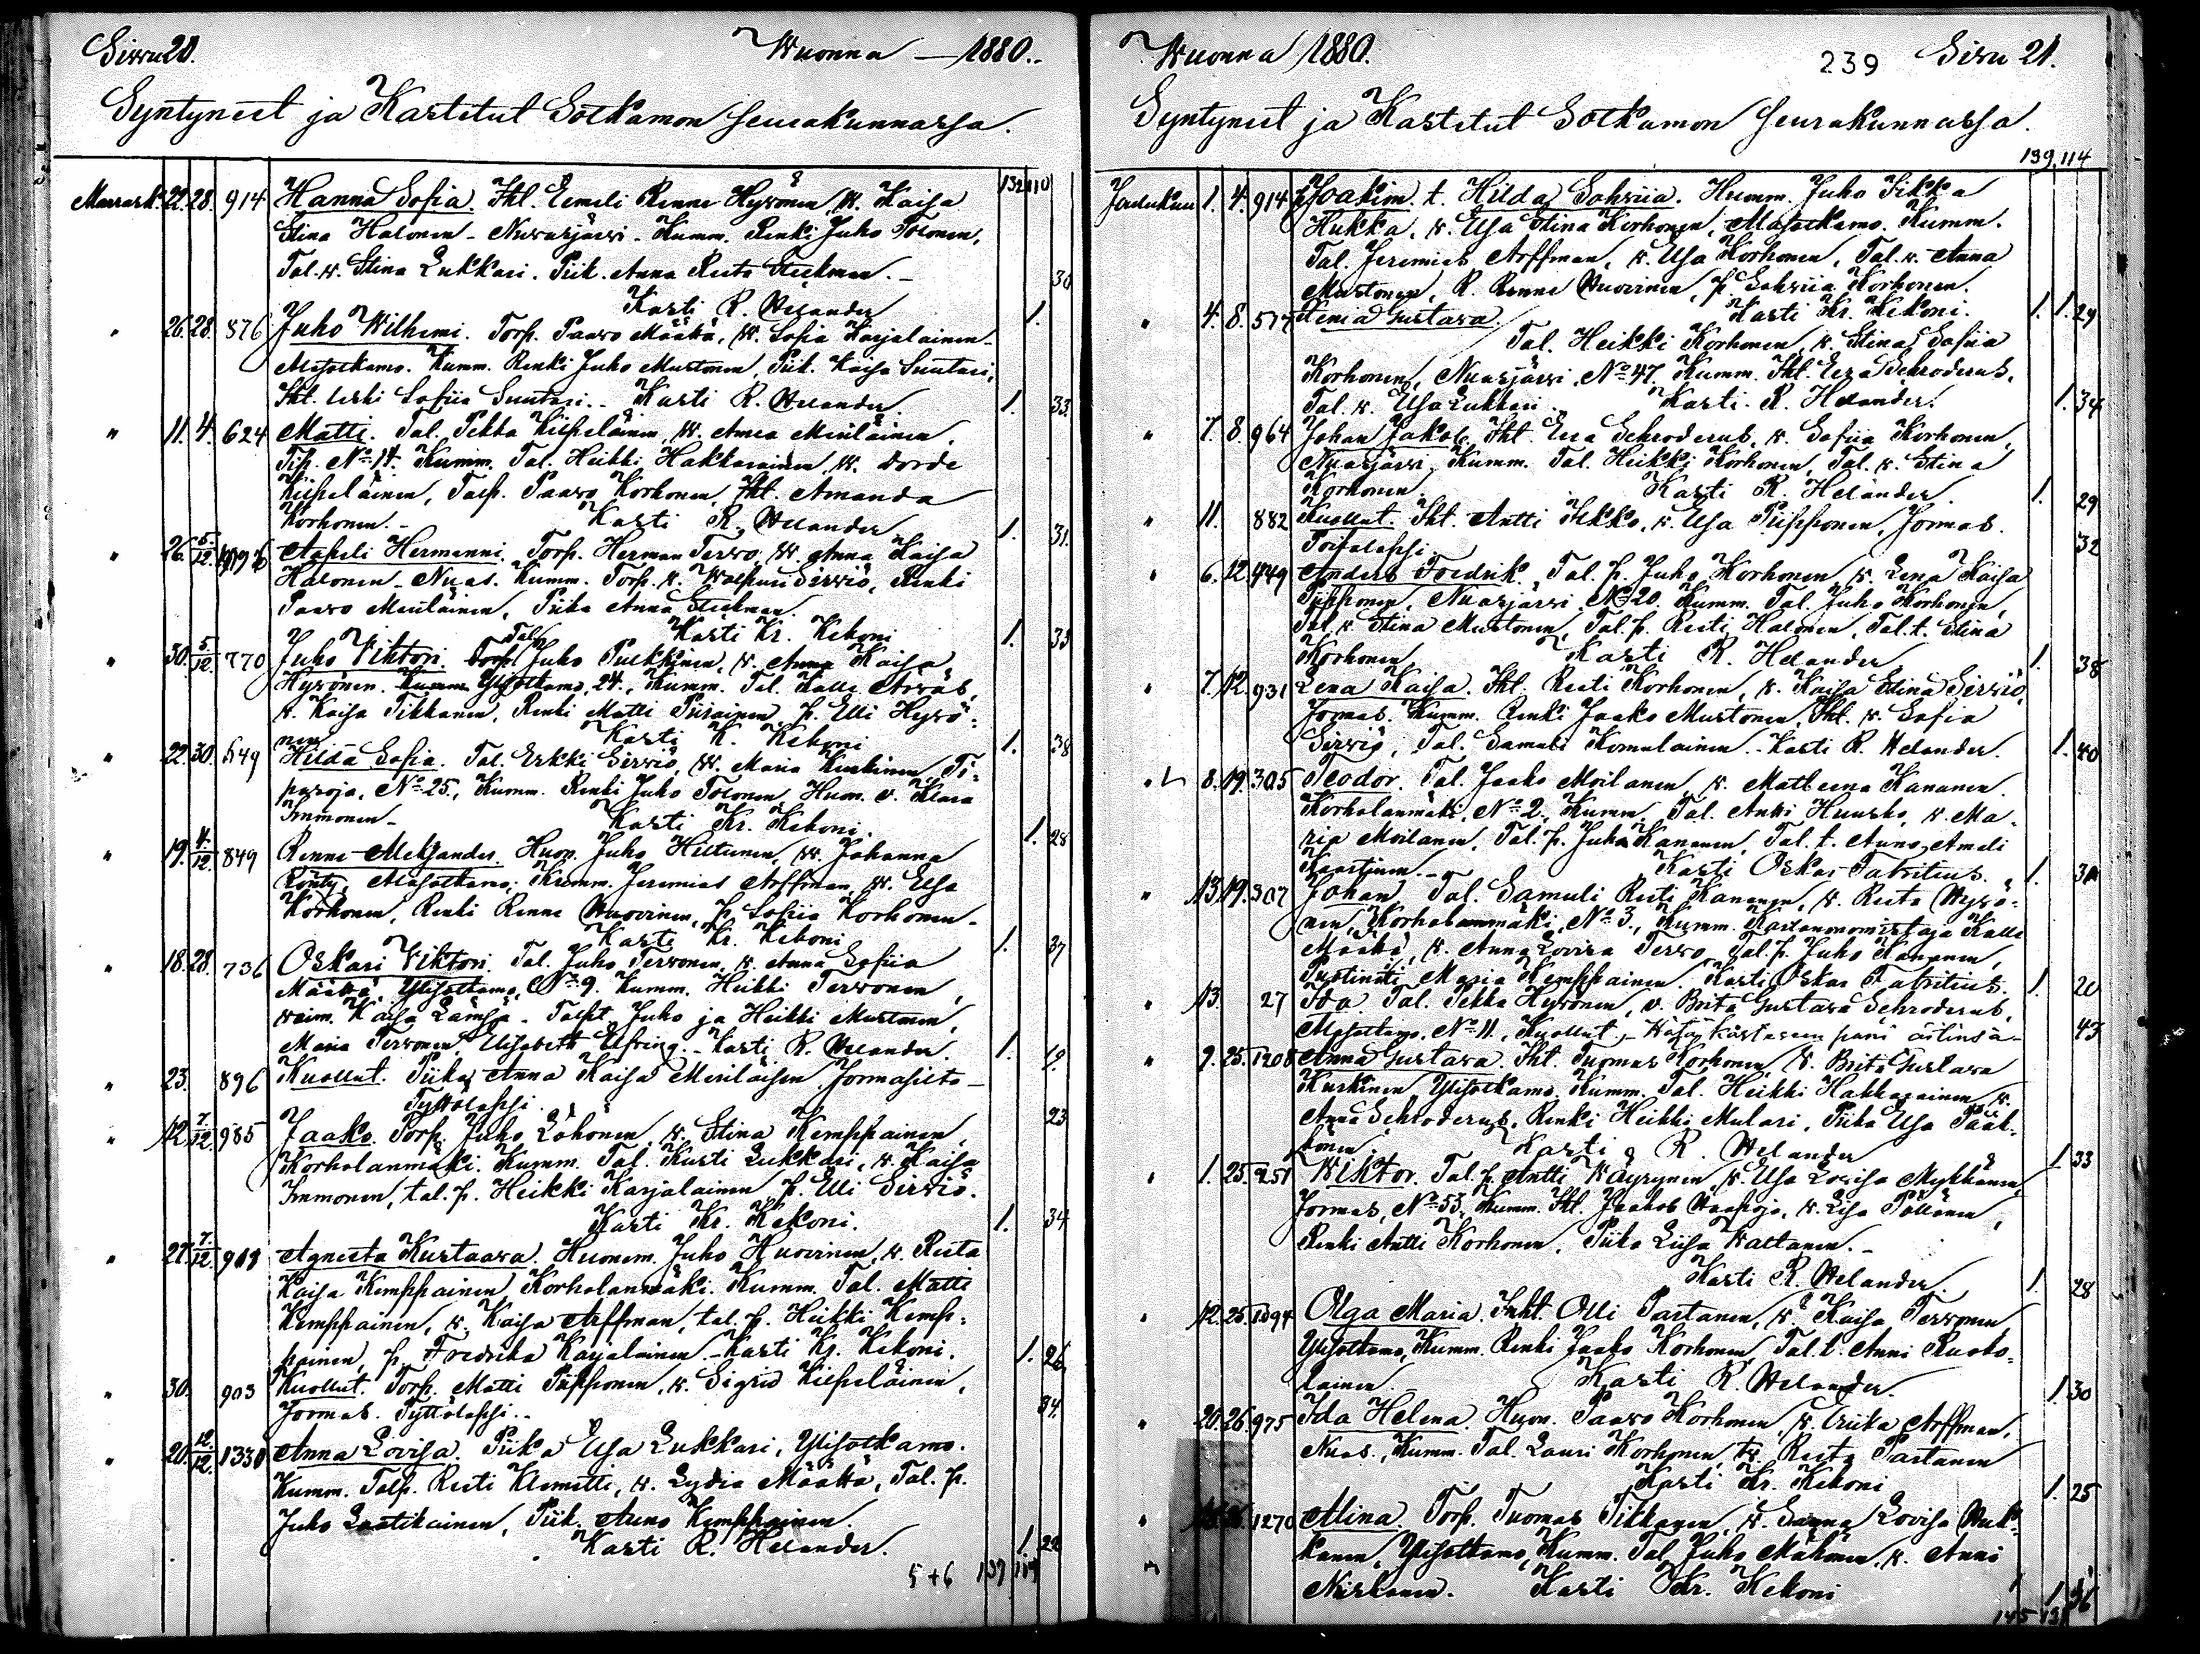 Sivu 20. Wuonna 1880.
Syntyneet ja Kastetut Sotkamon seurakunnassa.
132 110
Marrask. 22. 28. 914 Hanna Sofia. Itl. Eemeli Renne Hyvönen, w. Kaisa
Stina Halonen - Nuasjärvi - Kumm. Renki Juho Tolonen,
Tal. w. Stina Lukkari. Piik. Anna Reeta Heikman. - 30
Kasti R. Helander 1.
" 26. 28. 876 Juho Wilhemi. Torp. Paavo Määttä, w. Sofia Karjalainen
Kumm. Renki Juho Mustonen, Piik. Kaisa Suutari,
Itl. Leski Sofiia Suutari. - Kasti R. Helander. 1. 33.
" 11. 4. 624 Matti. Tal. Pekka Kiiskeläinen, w. Anna Meriläinen.
Tip. No 14. Kumm. Tal. Heikki Hakkarainen, w. Dorde
Torp. Paavo Korhonen, Itl. Amanda
Korhonen. - Kasti R. Helander 1. 31.
" 26. 5/12 Aapeli Hermanni. Torp. Herman Tervo, w. Anna Kaisa
Halonen - Nuas. Kumm. Torp. w. Walpuri Sirviö, Renki
Paavo Meriläinen, Piika Anna Heikman.
Kasti Kr. Kekoni 1. 33
" 30. 5/12 770 Juho Viktori. Tal. Juho Pulkkinen, w. Anna Kaisa
Hyvönen. Ylisotkamo, 24., Kumm. Tal. Kalle
w. Kaisa Tikkanen, Renki Matti Piirainen, p. Elli Hyvö-
nen Kasti K. Kekoni 1. 38
" 22. 30. 549 Hilda Sofia. Tal. Erkki Sirviö, w. Maria Kurkinen, Ti-
pasoja, No 25., Kumm. Renki Juho Tolonen, Huon. v. Klara
Immonen - Kasti Kr. Kekoni. 1. 28
" 19. 4/12 849 Renne Aleksander. Huon. Juho Heltunen, w. Johanna
Kumm. Jeremias Arffman, w. Elsa
Korhonen, Renki Renne Huovinen, p. Sofiia Korhonen -
Kasti Kr. Kekoni 1. 37
" 18. 28. 736 Oskari Viktori. Tal. Juho Tervonen, w. Anna Sofiia
Määttä, Ylisotkamo, No 9. Kumm. Heikki Tervonen,
waim. Kaisa Juho ja Heikki Mustonen,
Maria Tervonen, Elisabeth - Kasti R. Helander. 1. 19.
" 23. 896 Kuollut. Piika Anna Kaisa Meriläisen
Tyttölapsi. 23
" 12. 7/12 985 Jaako. Torp. Juho Löhönen, w. Stina Kemppainen,
Korholanmäki. Kumm. Tal. Kusti Lukkari, w. Kaisa
Immonen, tal. p. Heikki Karjalainen, p. Elli Sirviö.
Kasti Kr. Kekoni. 1. 34
" 27. 7/12 Agneeta Kustaava. Huonem. Juho Huovinen, w. Reeta
Kaisa Kemppainen, Korholanmäki. Kumm. Tal. Matti
Kemppainen, w. Kaisa Arffman, tal. p. Heikki Kemp-
painen, p. Fredrika Karjalainen - Kasti Kr. Kekoni. 1. 26
" 30. 903 Kuollut. Torp. Matti Piipponen, w. Sigrid
Jormas. Tyttölapsi. - 34.
" 20. 12/12 1330 Anna Lovisa. Piika Elsa Lukkari, Ylisotkamo.
Kumm. Talp. Reeti Klemetti, w. Lydia Määttä, Tal. p.
Juho Laatikainen, Piik. Anna Kemppainen.
Kasti R. Helander. 1. 22
5+6 137
Wuonna 1880. 239 Sivu 21.
Syntyneet ja Kastetut Sotkamon Seurakunnassa.
139. 114
Joulukuu 1. 4. 914 Joakim. t. Hilda Sohviia. Huonm. Juho Sikka
Hukka, w. Elsa Stina Korhonen, Kumm.
Tal. Jeremias Arffman, w. Elsa Korhonen, Tal. w. Anna
Mustonen, R. Renne Huovinen, p. Sohviia Korhonen.
Kasti Kr. Kekoni. 1. 1. 29
" 4. 8. Gustava.
Tal. Heikki Korhonen, w. Stina Sofiia
Korhonen, Nuasjärvi No 47. Kumm. Itl. Eera Schroderus,
Tal. w. Elsa Lukkari. Kasti R. Helander. 1. 34
" 7. 8. 964 Johan Jakob. Itl. Eera Schroderus, w. Sofiia Korhonen,
Nuasjärvi, Kumm. Tal. Heikki Korhonen, Tal. w. Stina
Korhonen. Kasti R. Helander. 1. 29
" 11. 882 Kuollut. Itl. Antti w. Elsa Piipponen, Jormas.
Poikalapsi. 32
" 6. 12. 449 Anders Fredrik. Tal. p. Juho Korhonen, w. Lena Kaisa
Piipponen, Nuasjärvi No 20. Kumm. Tal. Juho Korhonen,
Tal. w. Stina Mustonen, Tal. p. Reeti Halonen, Tal. t. Stina
Korhonen Kasti R. Helander 1. 38
" 7. 12. 931 Lena Kaisa. Itl. Reeti Korhonen, w. Kaisa Stina Sirviö,
Jormas. Kumm. Renki Jaako Mustonen, Itl. w. Sofia
Sirviö, Tal. Samuli Komulainen. - Kasti R. Helander. 1. 40
" 8. 19. 305 Teodor. Tal. Jaako Moilanen, w. Matleena Kananen.
Korholanmäki, No 2., Kumm. Tal. Antti Huusko, w. Ma-
ria Moilanen, Tal. p. Juho Kananen, Tal. t. Anna Amali
Kaartinen. - Kasti Oskar Fabritius. 1.
" 13. 19. 307 Johan. Tal. Samuli Reeti Kananen, w. Reeta Hyvö-
nen, Korholanmäki, No 3., Kumm. Kartanonomistaja Kalle
Määttä, w. Anna Lovisa Tervo, Tal. p. Juho Kananen,
Maria Kemppainen. Kasti Oskar Fabritius. 1. 20
" 13. 27 Ida. Tal. Pekka Hyvönen, v. Brita Gustava Schroderus,
No 11. Kuollut, 43
" 9. 25. 1208 Anna Gustava. Itl. Tuomas Korhonen, w. Brita Gustava
Kurkinen, Ylisotkamo. Kumm. Tal. Heikki Hakkarainen, w.
Anna Schroderus, Renki Heikki Mulari, Piika Elsa Pääk-
könen. Kasti R. Helander 1. 33
" 1. 25. 251 Wiktor. Tal. p. Antti Wäyrynen, w. Elsa Lovisa Mykkänen,
Jormas, No 53, Kumm. Itl. Jaakob w. Lisa Pöllänen,
Renki Antti Korhonen, Piika Liisa Waltanen. -
Kasti R. Helander. 1. 28
" 12. 25. 1394 Olga Maria. Itl. Olli Partanen, w. Kaisa Tervonen,
Ylisotkamo, Kumm. Renki Jaako Korhonen, Tal. t. Anni Ruoko-
lainen. Kasti R. Helander. 1. 30
" 20. 26. 975 Ida Helena. Huon. Paavo Korhonen, w. Ulriika Arffman,
Nuas., Kumm. Tal. Lauri Korhonen, w. Reeta Partanen
Kasti Kr. Kekoni 1. 25
" 1270 Alina. Torp. Tuomas Tikkanen, w. Sanna Lovisa
Ylisotkamo, Kumm. Tal. Juho Mähönen, w. Anna
Kasti Kr. Kekoni 1. 36